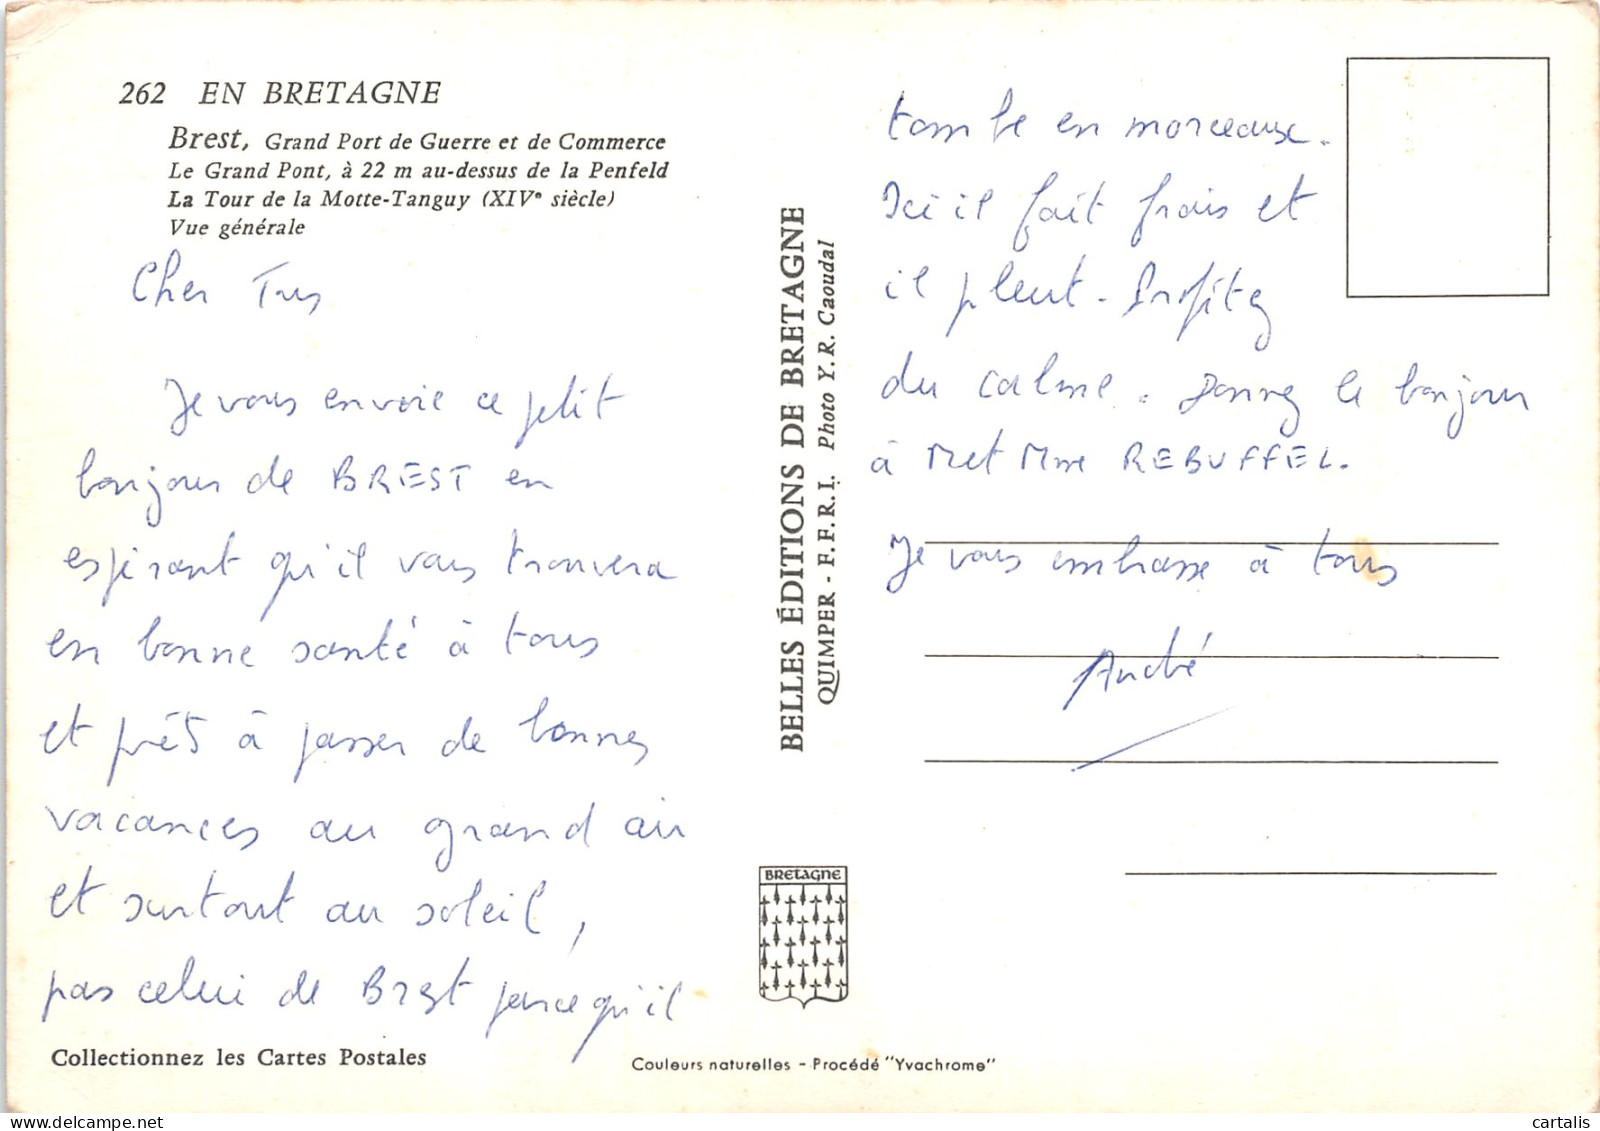 262 EN BRETAGNE
Brest, Grand Port de Guerre et de Commerce
Le Grand Pont, à 22 m au-dessus de la Penfeld
La Tour de la Motte-Tanguy (XIVe siècle)
Vue générale
Cher
Je vous envoie ce petit
bonjour de BREST en
espérant qu'il vous trouvera
en bonne santé à tous
et prêts à passer de bonnes
vacances au grand air
et surtout au soleil,
pas celui de Brest parce qu'il
Collectionnez les Cartes Postales
BELLES ÉDITIONS DE BRETAGNE
QUIMPER - F.F.R.I. Photo Y.R. Caoudal
BRETAGNE
Couleurs naturelles - Procédé "Yvachrome"
tombe en morceaux.
Ici il fait frais et
il pleut. Profitez
du calme. Donnez le bonjour
à M et Mme REBUFFEL.
Je vous embrasse à tous
André
cartalis
delcampe.net